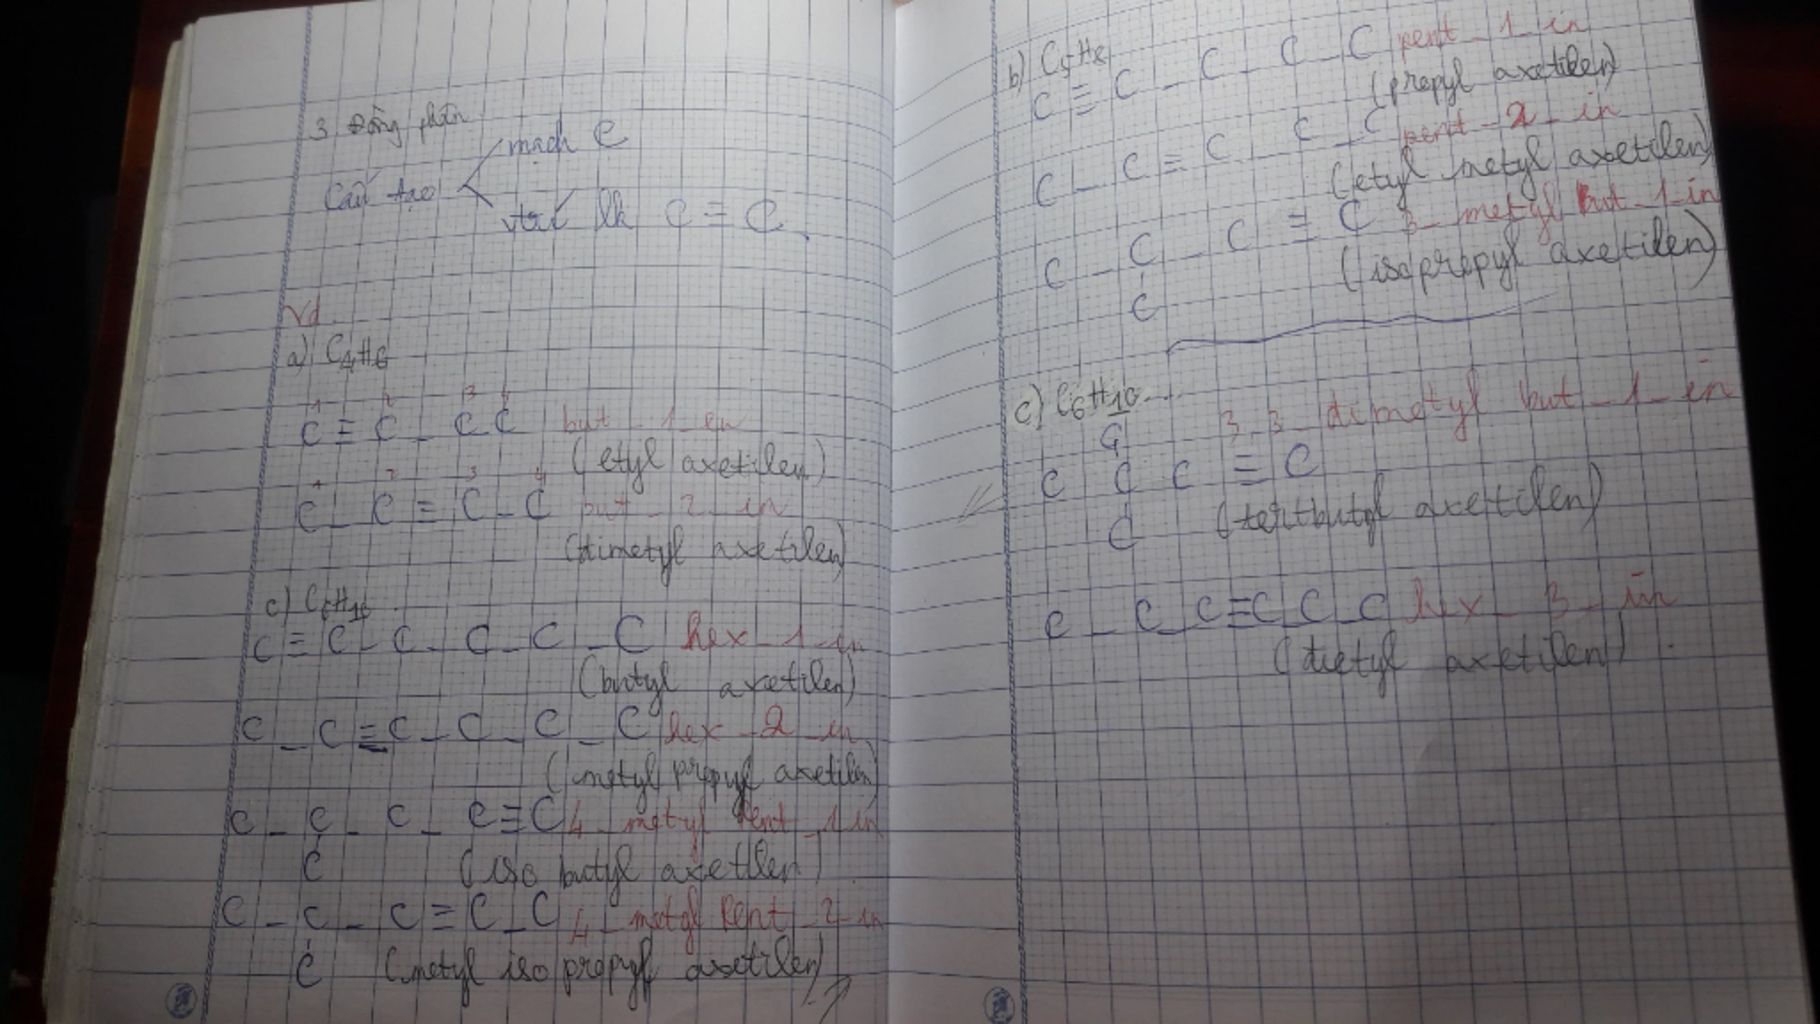 3 Đồng phân
mạch C
Cấu tạo
vtrí lk C ≡ C
Vd
a) C4H6
1 2 3 4
C ≡ C - C C but - 1 - in
(etyl axetilen)
1 2 3 4
C - C ≡ C - C but - 2 - in
(dimetyl axetilen)
c) C6H10
C ≡ C - C - C - C - C hex - 1 - in
(butyl axetilen)
C - C ≡ C - C - C - C hex - 2 - in
(metyl propyl axetilen)
C - C - C - C ≡ C 4 - metyl pent - 1 in
C (iso butyl axetilen)
C - C - C ≡ C - C 4 - metyl pent - 2 - in
C (metyl iso propyl axetilen)
b) C5H8
C ≡ C - C - C - C pent - 1 - in
(propyl axetilen)
C - C ≡ C - C - C pent - 2 - in
(etyl metyl axetilen)
C - C - C ≡ C 3 - metyl but - 1 - in
C (isopropyl axetilen)
c) C6H10
C 3 - 3 - dimetyl but - 1 - in
C C C ≡ C
C (tertbutyl axetilen)
C - C C ≡ C C C hex - 3 - in
(dietyl axetilen)